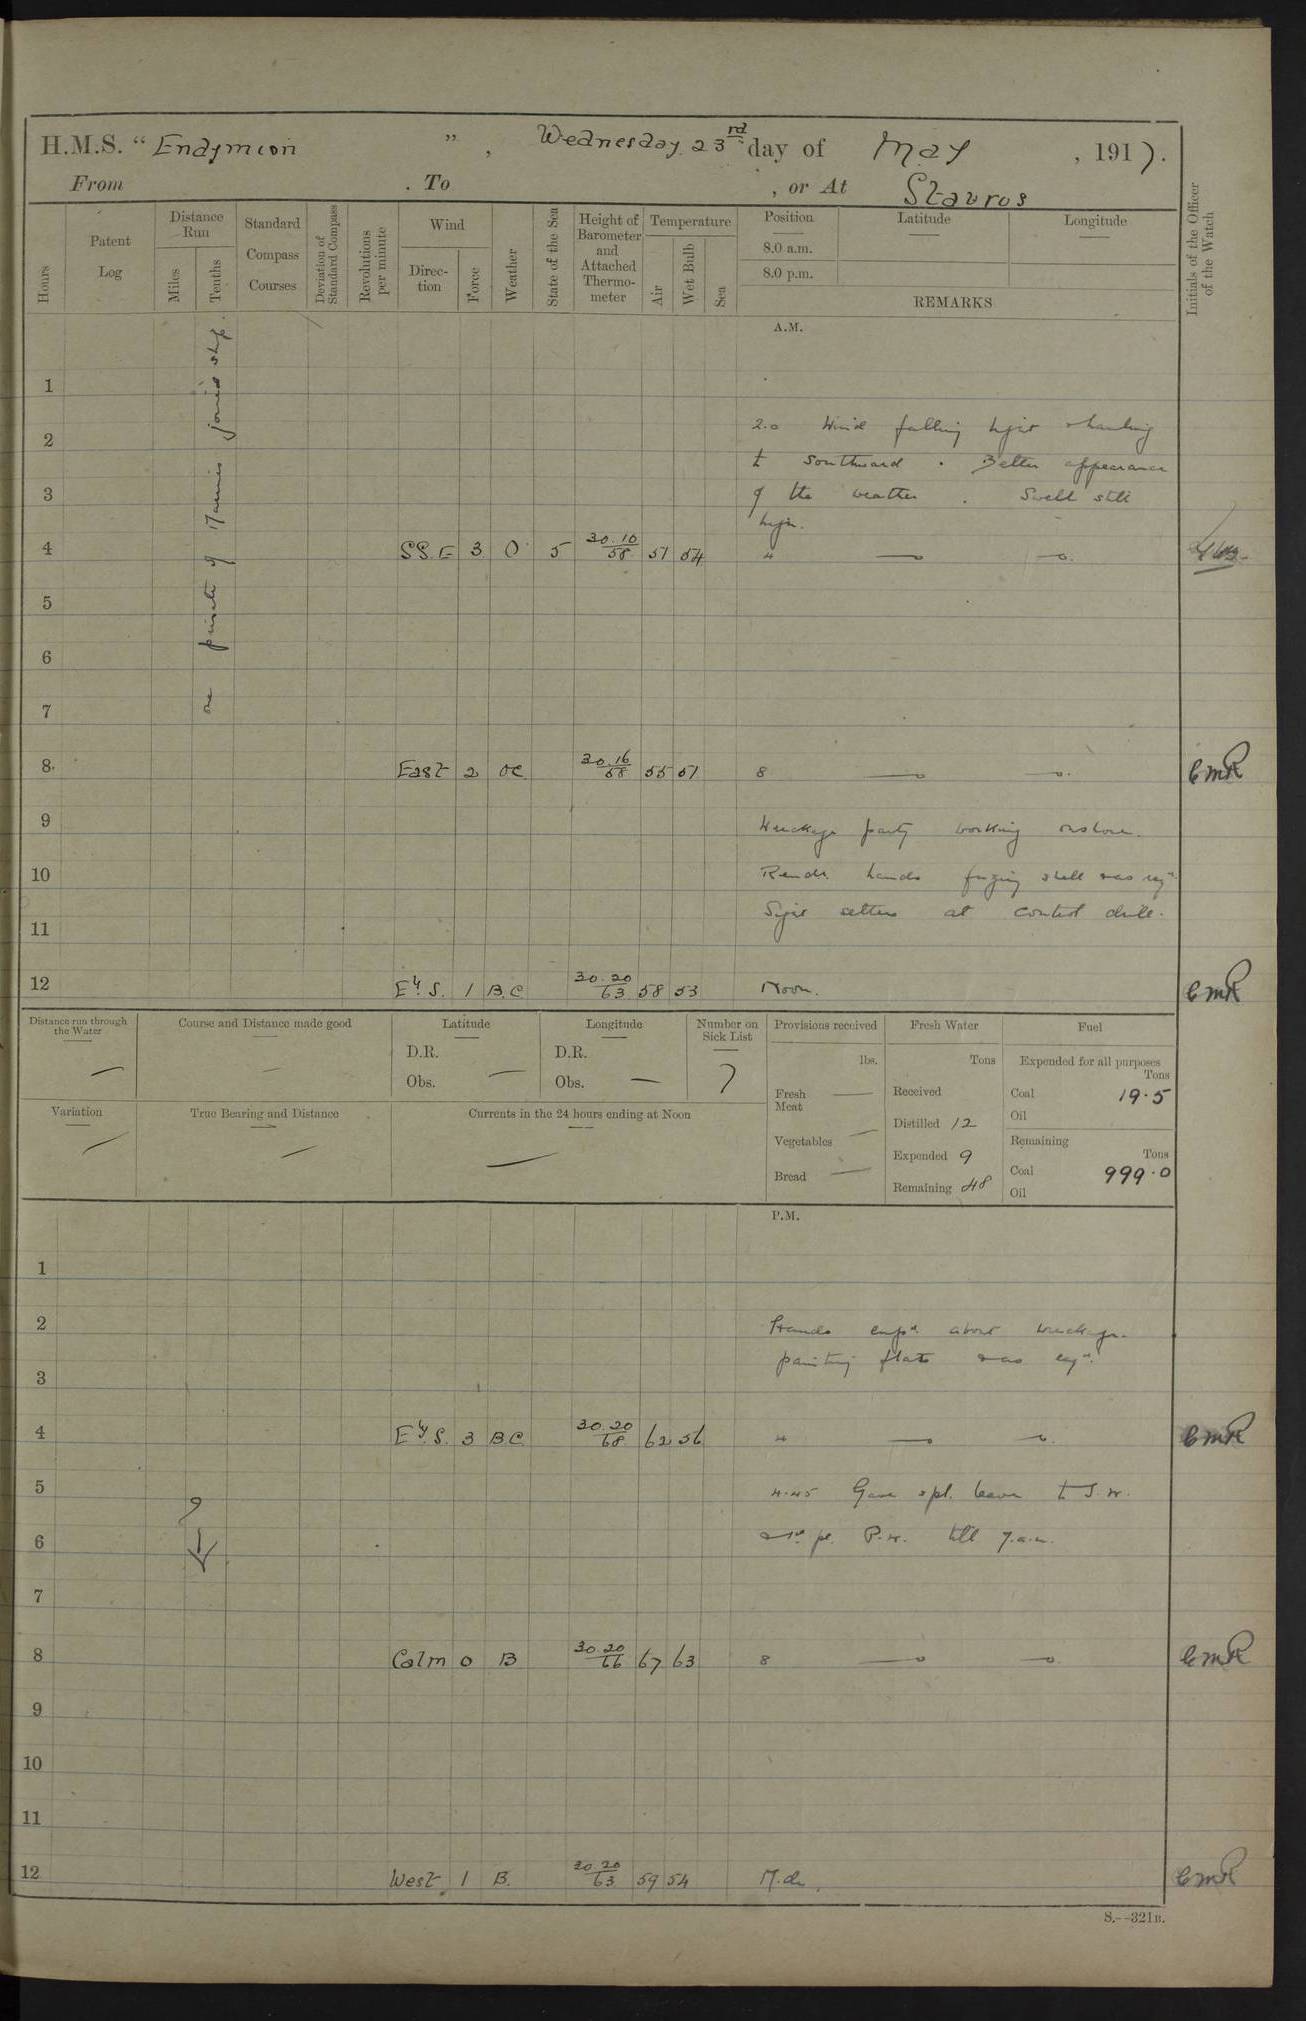 H.M.S. “ Endymion ” , Wednesday 23rd day of May , 1917.
From . To , or At Stavros
Hours
Patent Log
Distance Run
Miles
Tenths
Standard Compass Courses
Deviation of Standard Compass
Revolutions per minute
Wind
Direc- tion
Force
Weather
State of the Sea
Height of Barometer and Attached Thermo- meter
Temperature
Air
Wet Bulb
Sea
Position Latitude Longitude
8.0 a.m.
8.0 p.m.
REMARKS
Initials of the Officer of the Watch
one private of Marines joined ship.
A.M.
1
2 2.0 Wind falling light & hauling
to Southward . Better appearance
3 of the weather . Swell still
high.
4 SS.E 3 O 5 30.10/58 51 54 4
5
6
7
8 East 2 oc 30.16/58 55 51 8 CMR
9 Wreckage party working onshore.
10 Remdr. hands fuzing shell & as reqd.
Sight setters at control drill.
11
12 Ely S. 1 B.C 30.20/63 58 53 Noon. CMR
Distance run through the Water
Course and Distance made good
Latitude
D.R.
Obs. —
Longitude
D.R.
Obs. —
Number on Sick List
7
Provisions received
lbs.
Fresh Meat —
Vegetables —
Bread —
Fresh Water
Tons
Received
Distilled 12
Expended 9
Remaining 48
Fuel
Expended for all purposes
Tons
Coal 19.5
Oil
Remaining
Tons
Coal 999.0
Oil
Variation
True Bearing and Distance
Currents in the 24 hours ending at Noon
P.M.
1
2 Hands empd. about wreckage.
painting flats & as reqd.
3
4 Ely S. 3 B C 30.20/68 62 56 4 CMR
5 4.45 Gave spl. leave to S.W.
6 & 1st pt. P.W. till 7.a.m.
7
8 Calm 0 B 30.20/66 67 63 8 CMR
9
10
11
12 West 1 B. 30.20/63 59 54 M.dn. CMR
S.--321B.